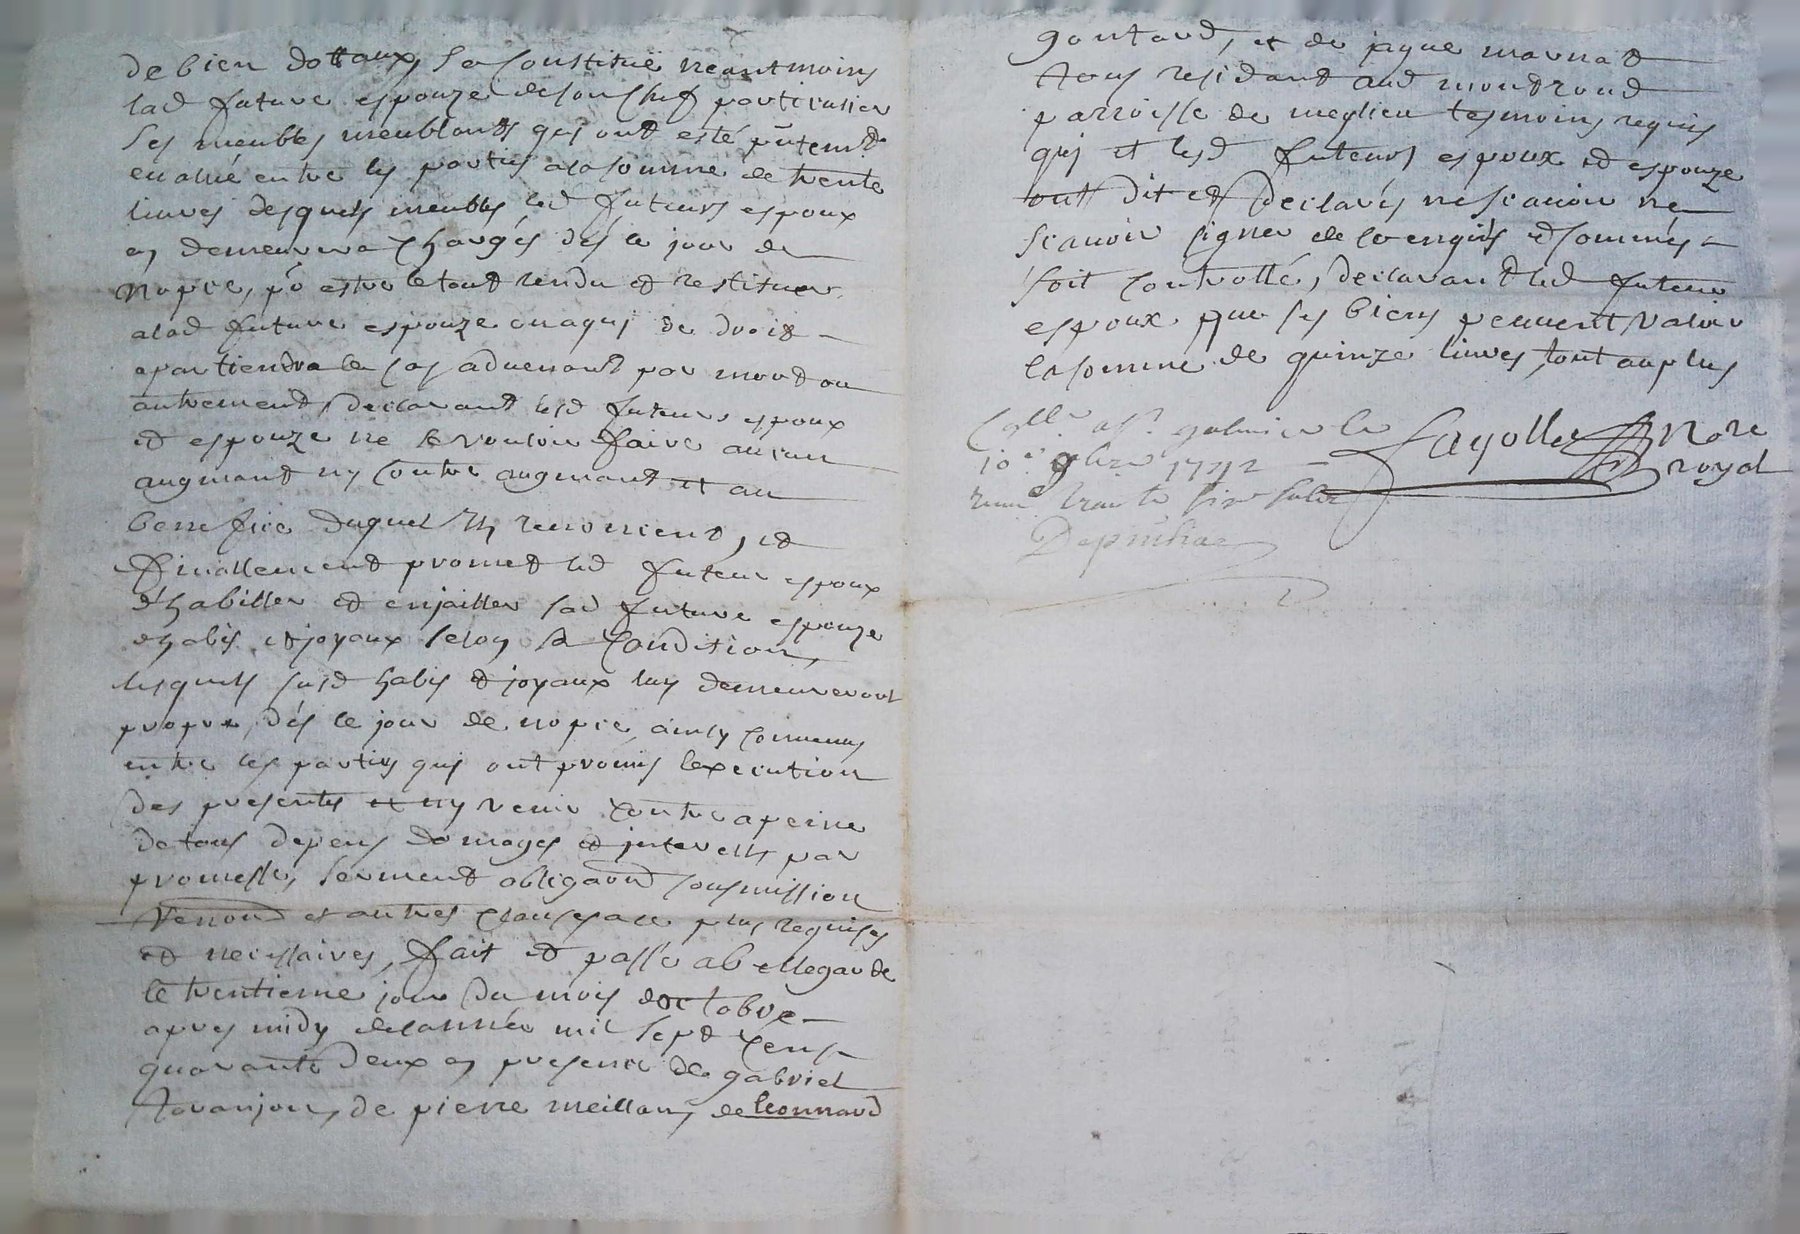 de bien dottaux, se Constitue neantmoins
lad future espouze de son Chef particulier
ses meubles meublants qui ont esté pntemt
evalué entre les parties a la somme de trente
livres desquels meubles led futeurs espoux
en demeurera Chargés des le jour de
nopce, po estre le tout rendu et restituer
a lad future espouze ou a qui de droit
apartiendra le cas advenant par mort ou
autrement, declarant lesd futeurs espoux
et espouze ne le vouloir faire aucun
augment ny Contre augment et au
benefice duquel ils renoncent, et
finallement promet led futeur espoux
d'habiller et enjoiller sad future espouze
dhabis et joyaux selon sa Condition,
lesquels susd habis et joyaux luy demeureront
propre des le jour de nopce, ainsy convenus
entre les parties qui ont promis lexecution
des presentes et ny venir Contre a peine
de tous depens domages et interests par
promesse, serment obligaond sousmission
Renond et autres Clauses a ce plus requises
et necessaires, fait et passé a bellegarde
le trentieme jour du mois doctobre
apres midy de lannée mil sept Cens
quarante deux en presence de gabriel
de pierre meillan, de leonnard
goutard, et de jaque marnat
tous residant aud montrond
parroisse de meylieu tesmoins requis
qui et lesd futeurs espoux et espouze
ont dit et declarés ne scavoir ne
scavoir signer de ce enquis et sommés
soit Controllé, declarant led futeur
espoux que ses biens peuvent valoir
la somme de quinze livres tout au plus
Collé a St galmier le
10e 9bre 1742
Fayolle Nore
royal